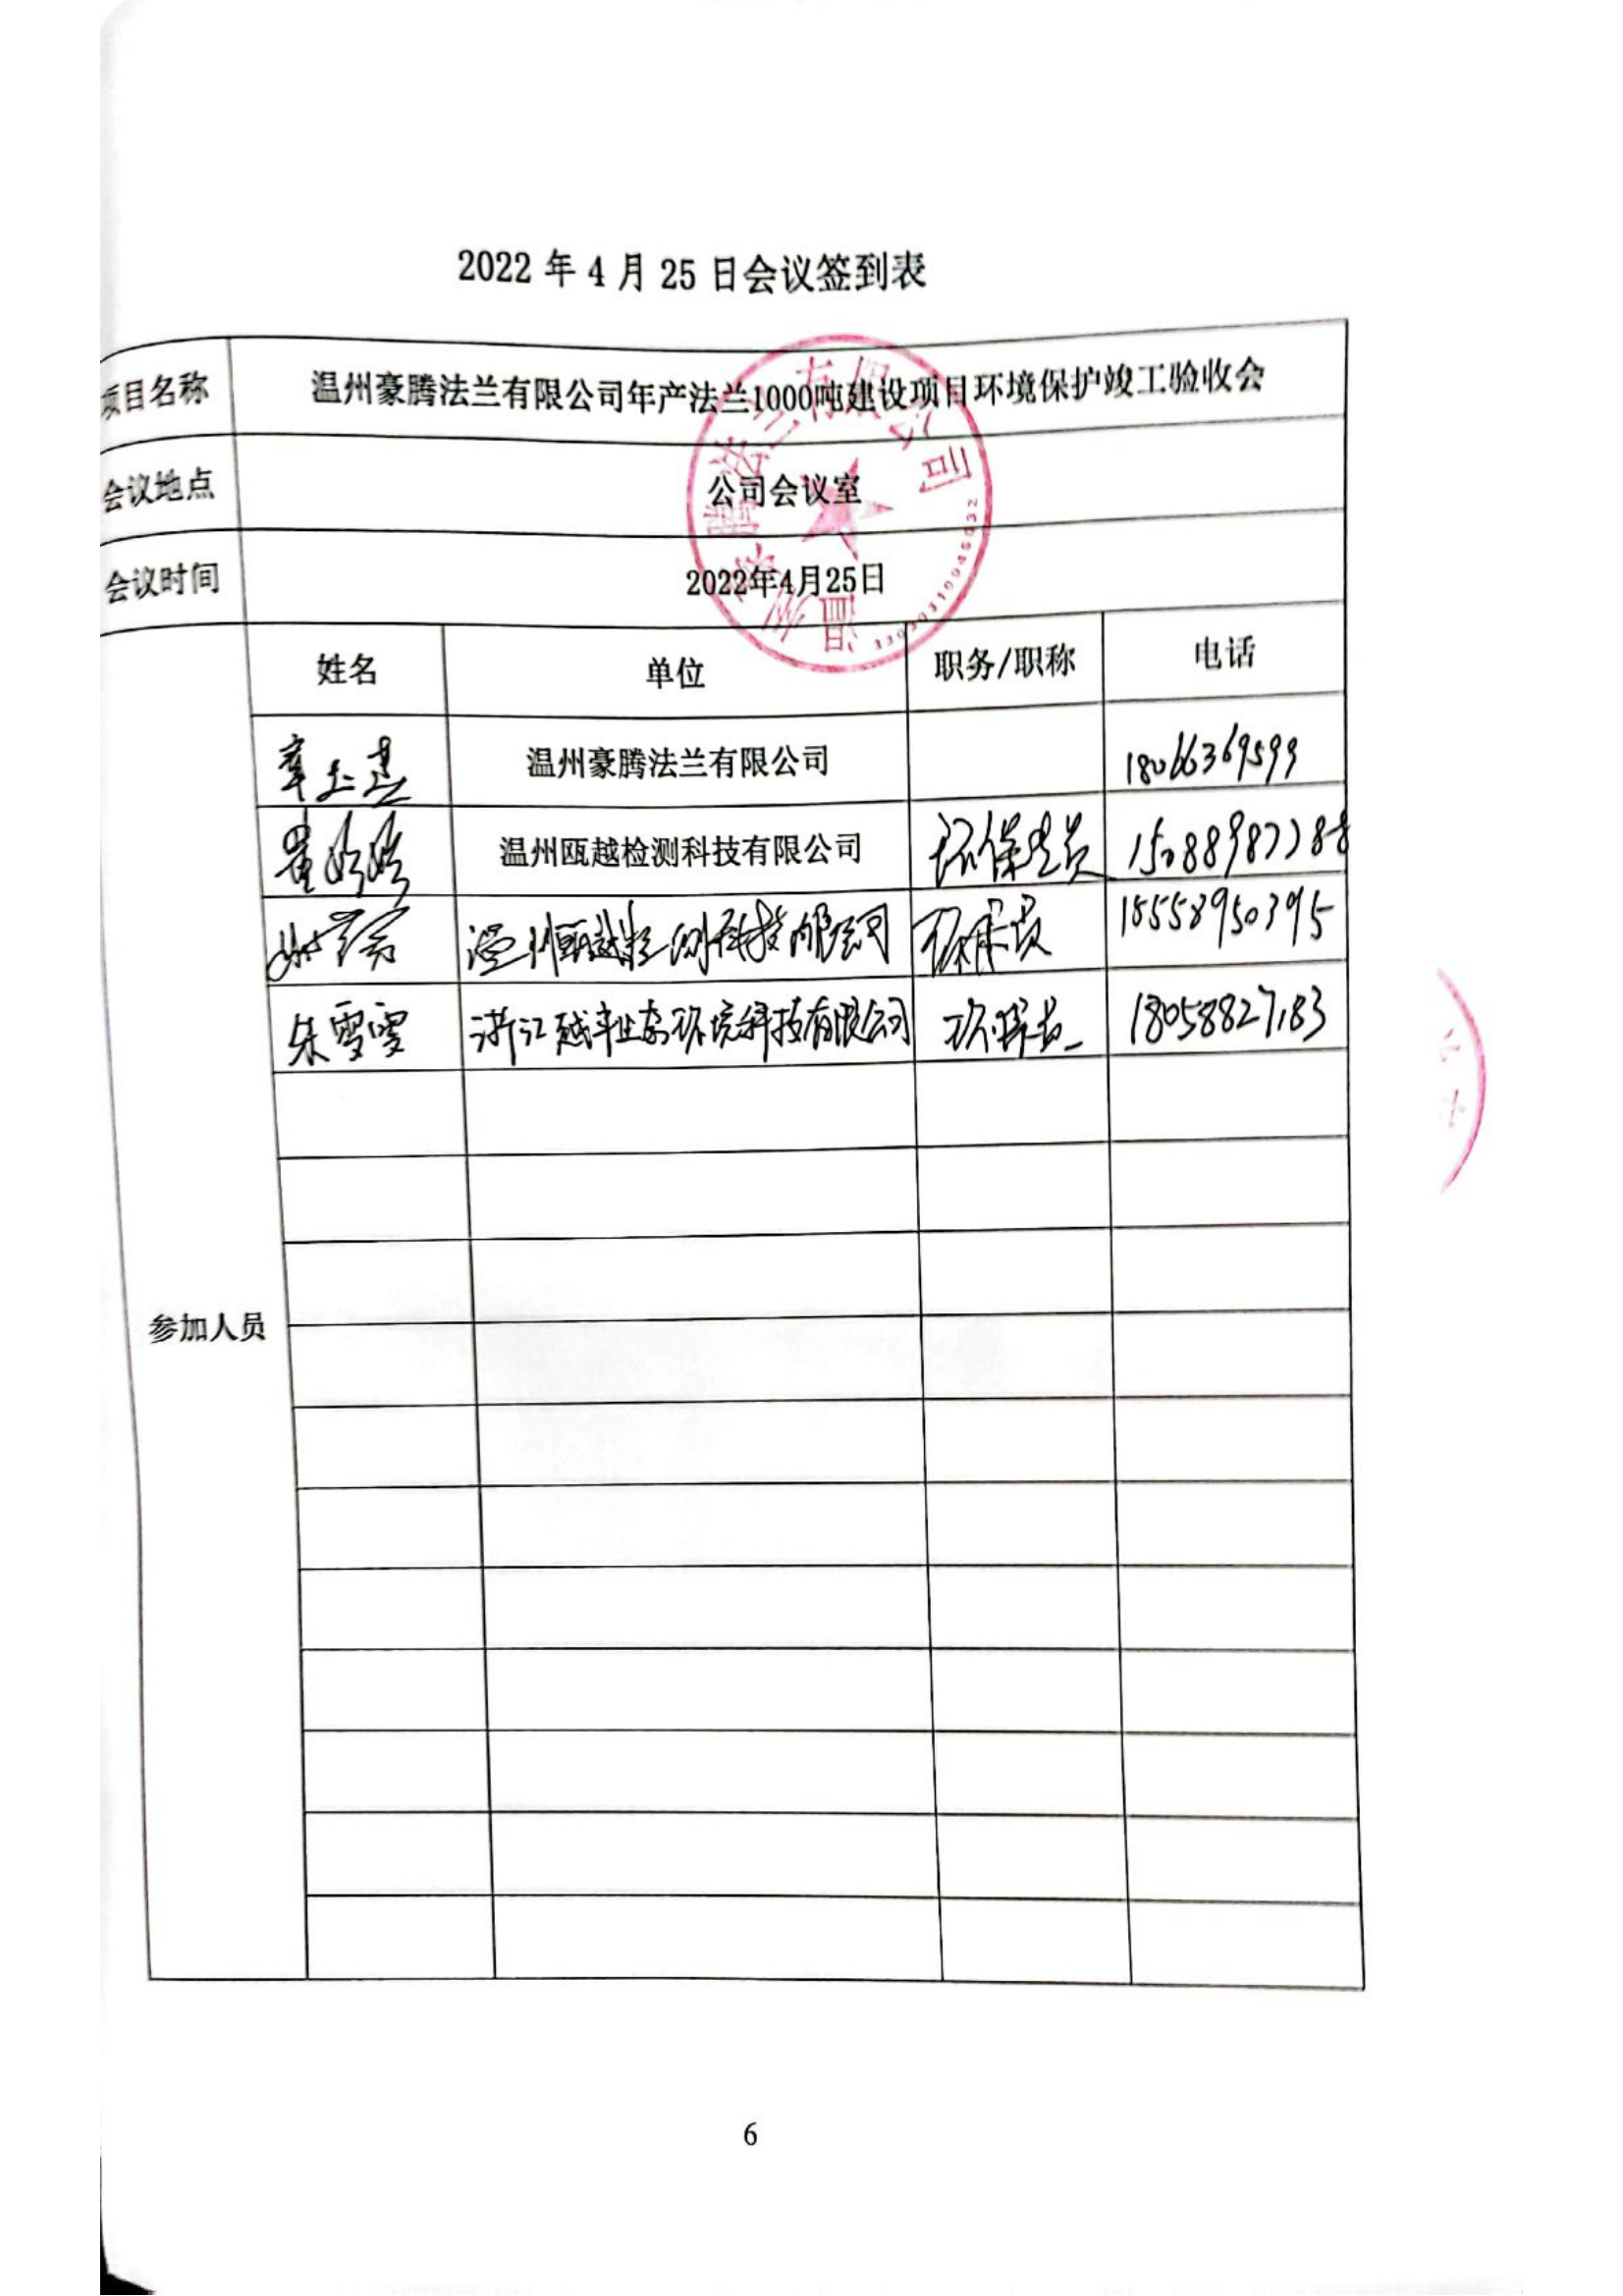 2022 年 4 月 25 日会议签到表
项目名称 温州豪腾法兰有限公司年产法兰1000吨建设项目环境保护竣工验收会
会议地点 公司会议室
会议时间 2022年4月25日
温州豪腾法兰有限公司
姓名 单位 职务/职称 电话
温州豪腾法兰有限公司 18066369599
温州瓯越检测科技有限公司 环保专员
温州瓯越检测科技有限公司 15558950395
朱雯雯 浙江 环境科技有限公司
参加人员
6